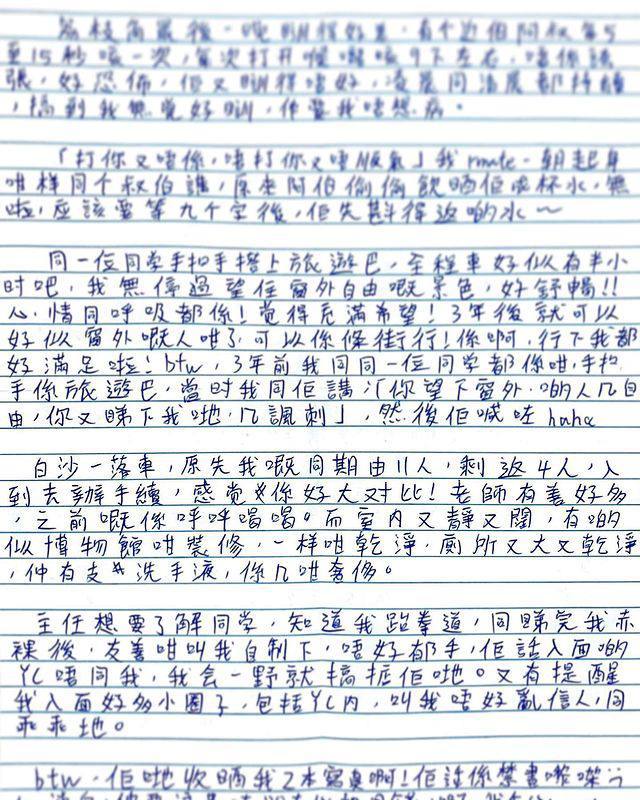 荔枝角最後一晚瞓得好差,有个近個阿叔每5
至15秒咳一次,每次打开喉嚨咳9下左右,唔係誇
張,好恐怖,佢又瞓得唔好,凌晨同清晨都持續
,搞到我無覺好瞓,仲整我唔想病。
「打你又唔係,唔打你又唔順氣」我 mate 一朝起身
咁样同个叔伯講,原來阿伯偷偷飲晒佢嗰杯水,無
啦,应該要等九个字後,佢先斟得返啲水~
同一位同学手扣手搭上旅遊巴,全程車好似有半小
时吧,我無停過望住窗外自由嘅景色,好舒暢!!
心情同呼吸都係!覚得充滿希望!3年後就可以
好似窗外嘅人咁了,可以係條街行!係啊,行下我都
好滿足啦!btw,3年前我同同一位同学都係咁,手扣
手係旅遊巴,當时我同佢講:「你望下窗外啲人几自
由,你又睇下我哋,几諷刺」,然後佢喊咗 haha
白沙一落車,原先我嘅同期由11人,剩返4人,入
到去辦手續,感覚係好大对比!老師有善好多
,之前嘅係呼呼喝喝。而室内又靜又闊,有啲
似博物館咁裝修,一样咁乾淨,廁所又大又乾淨
,仲有支洗手液,係几咁奢侈。
主任想要了解同学,知道我跆拳道,同睇完我赤
裸後,友善咁叫我自制下,唔好郁手,佢話入面啲
YC唔同我,我会一野就搞掂佢哋。又有提醒
我入面好多小圈子,包括YC内,叫我唔好亂信人,同
乖乖地。
btw,佢哋收晒我2本寫真啊!佢話係禁書嚟㗎